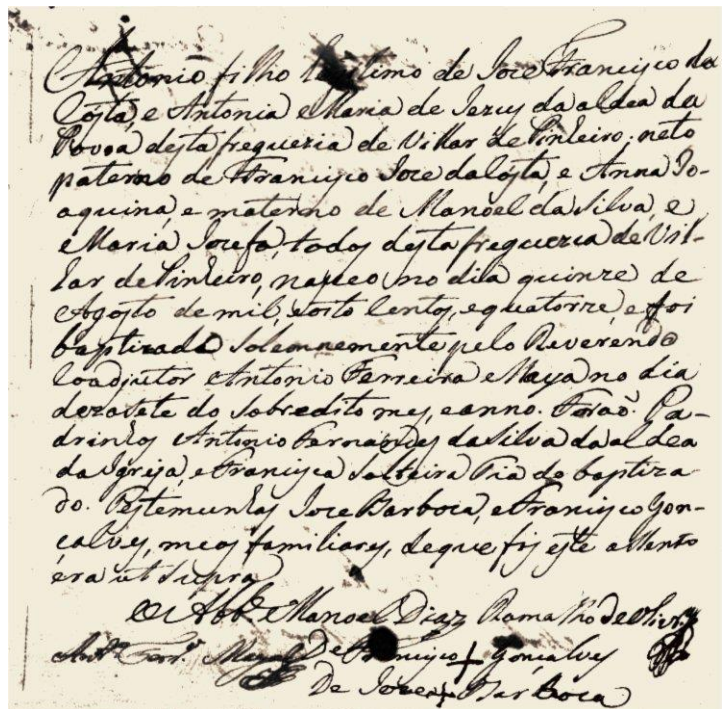 Antonio filho legitimo de Joze Francisco da
Costa, e Antonia Maria de Jezus da aldea da
Povoa desta freguezia de Villar de Pinheiro; neto
paterno de Francisco Joze da Costa, e Anna Jo-
aquina, e materno de Manoel da Silva, e
Maria Josefa, todos desta freguezia de Vil-
lar de Pinheiro, nasceo no dia quinze de
Agosto de mil, e oito centos, e quatorze, e foi
baptizado solemnemente pelo Reverendo
Coadjutor Antonio Ferreira e Maya no dia
dezasete do sobredito mes, e anno. Forão Pa-
drinhos Antonio Fernandes da Silva da aldea
da Igreja, e Francisca solteira Tia do baptiza-
do. Testemunhas Joze Barboca, e Francisco Gon-
calves, meos familiares, de que fis este assento
éra ut supra
O Abb.e Manoel Diaz Ramalho de Olivr.a
Ant.o Ferr.a Maya De Francisco + Gonçalves
De Joze + Barboca